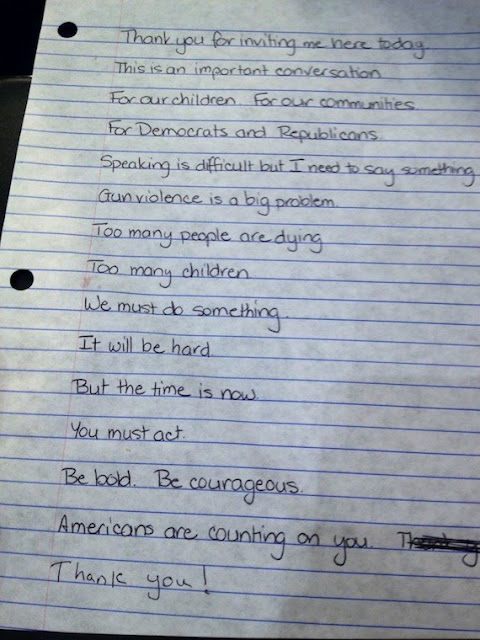 Thank you for inviting me here today
This is an important conversation
For our children. For our communities.
For Democrats and Republicans
Speaking is difficult but I need to say something
Gun violence is a big problem.
Too many people are dying
Too many children
We must do something.
It will be hard
But the time is now.
You must act.
Be bold. Be courageous.
Americans are counting on you.
Thank you!